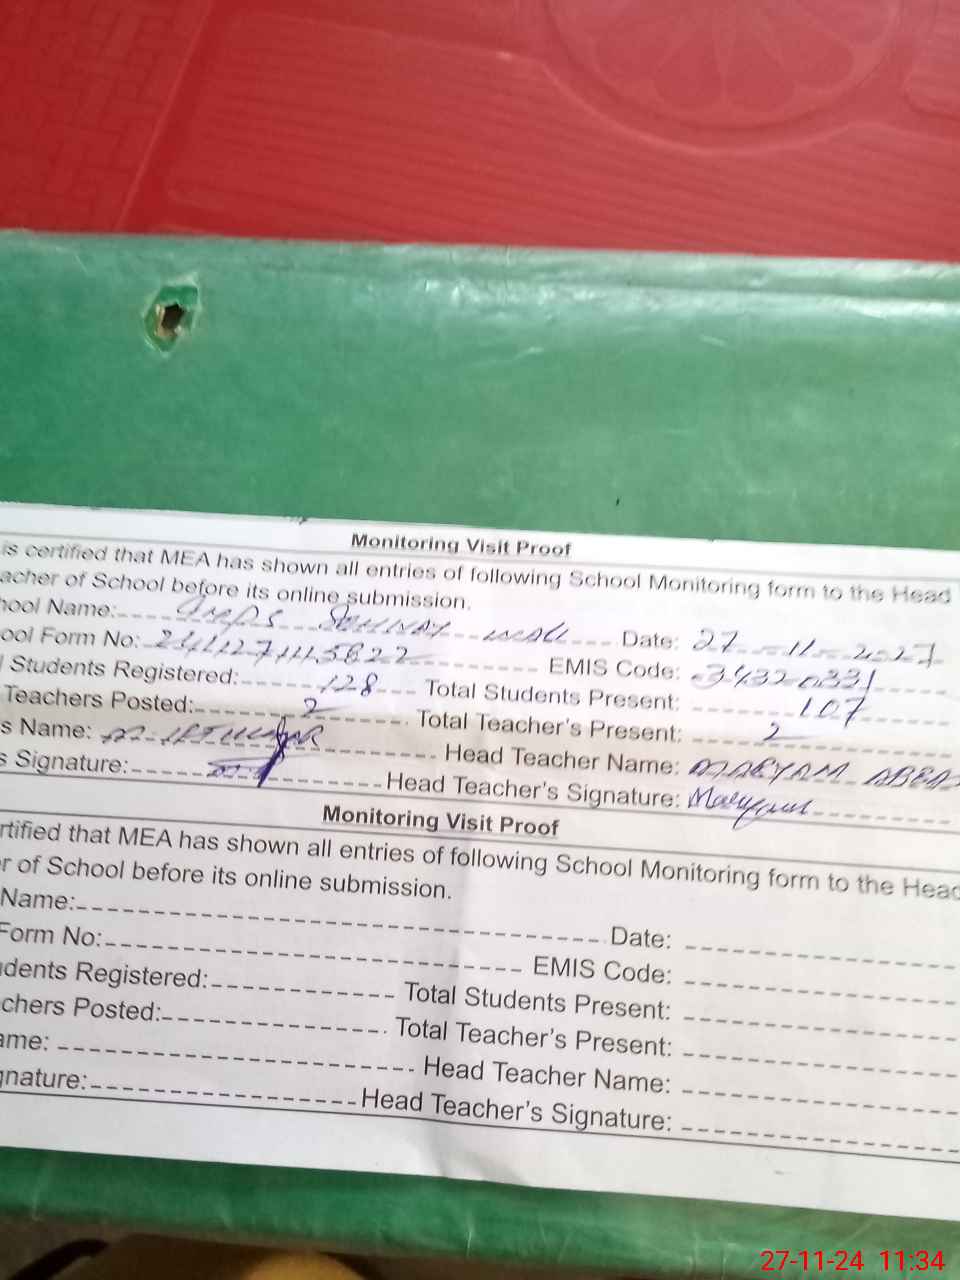 Monitoring Visit Proof
is certified that MEA has shown all entries of following School Monitoring form to the Head
acher of School before its online submission.
hool Name: GMPS Date:
ool Form No: EMIS Code:
l Students Registered: 128 Total Students Present: 107
Teachers Posted: 2 Total Teacher's Present: 2
s Name: Head Teacher Name: MARYAM
s Signature: Head Teacher's Signature: Maryam
Monitoring Visit Proof
rtified that MEA has shown all entries of following School Monitoring form to the Head
r of School before its online submission.
Name: Date:
Form No: EMIS Code:
dents Registered: Total Students Present:
chers Posted: Total Teacher's Present:
ame: Head Teacher Name:
gnature: Head Teacher's Signature:
27-11-24 11:34